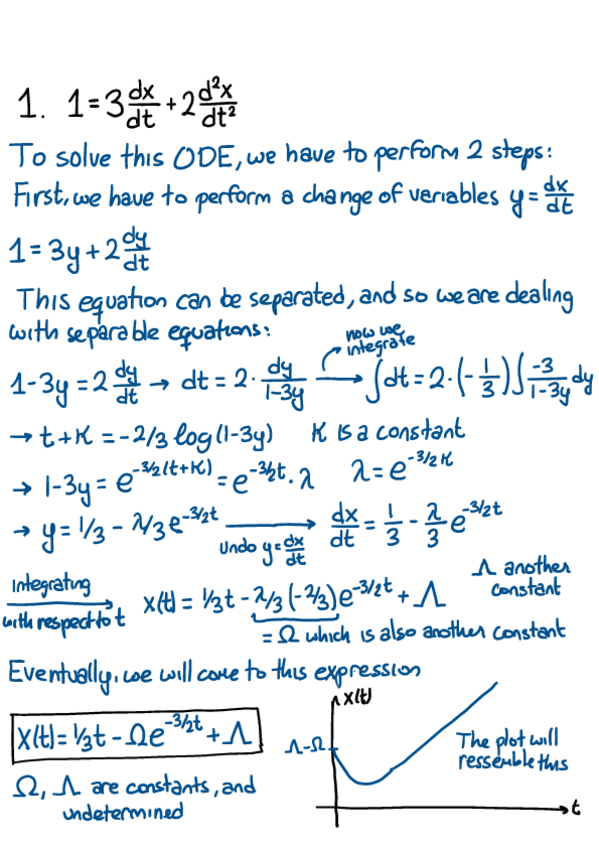 1. 1=3 dx/dt + 2 d²x/dt²
To solve this ODE, we have to perform 2 steps:
First, we have to perform a change of variables y = dx/dt
1 = 3y + 2 dy/dt
This equation can be separated, and so we are dealing
with separable equations:
now we
integrate
1-3y = 2 dy/dt → dt = 2 · dy/1-3y → ∫dt = 2·(-1/3)∫ -3/1-3y dy
→ t+K = -2/3 log(1-3y) K is a constant
→ 1-3y = e^-3/2(t+K) = e^-3/2t · λ λ = e^-3/2K
→ y = 1/3 - λ/3 e^-3/2t → dx/dt = 1/3 - λ/3 e^-3/2t
Undo y = dx/dt
Integrating
with respect to t
X(t) = 1/3t - λ/3 (-2/3)e^-3/2t + Λ
Λ another
constant
= Ω which is also another constant
Eventually, we will come to this expression
X(t) = 1/3t - Ωe^-3/2t + Λ
Ω, Λ are constants, and
undetermined
X(t)
Λ-Ω
The plot will
ressemble this
t